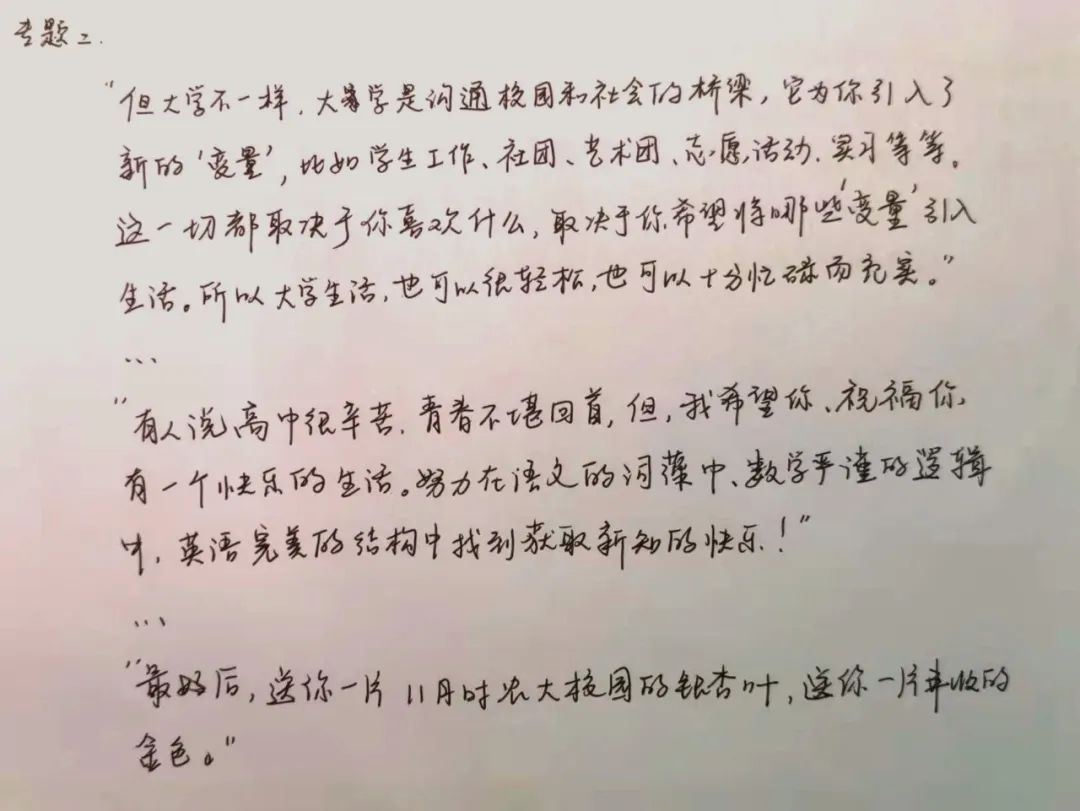 专题二.
“但大学不一样，大学是沟通校园和社会的桥梁，它为你引入了
新的‘变量’，比如学生工作、社团、艺术团、志愿活动、实习等等。
这一切都取决于你喜欢什么，取决于你希望将哪些‘变量’引入
生活。所以大学生活，也可以很轻松，也可以十分忙碌而充实。”
...
“有人说高中很辛苦，青春不堪回首，但，我希望你、祝福你
有一个快乐的生活。努力在语文的词藻中、数学严谨的逻辑
中，英语完美的结构中找到获取新知的快乐！”
...
“最好后，送你一片11月时农大校园的银杏叶，送你一片丰收的
金色。”